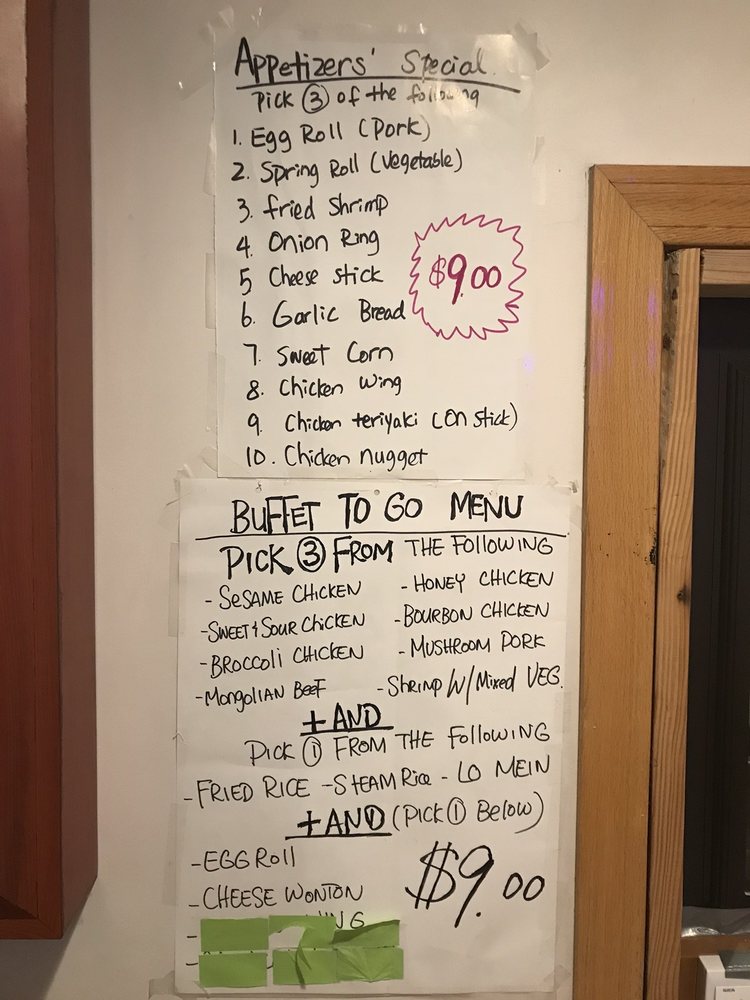 Appetizers' Special
Pick 3 of the following
1. Egg Roll (Pork)
2. Spring Roll (vegetable)
3. fried Shrimp
4. Onion Ring
5 Cheese stick
6. Garlic Bread
7. Sweet Corn
8. Chicken Wing
9. Chicken teriyaki (on stick)
10. Chicken nugget
$9.00
BUFFET TO GO MENU
PICK 3 FROM THE FOLLOWING
- SESAME CHICKEN - HONEY CHICKEN
- SWEET & SOUR CHICKEN - BOURBON CHICKEN
- BROCCOLI CHICKEN - MUSHROOM PORK
- MONGOLIAN BEEF - SHRIMP W/ MIXED VEG.
+ AND
PICK 1 FROM THE FOLLOWING
- FRIED RICE - STEAM RICE - LO MEIN
+ AND (PICK 1 BELOW)
- EGG ROLL
- CHEESE WONTON
$9.00